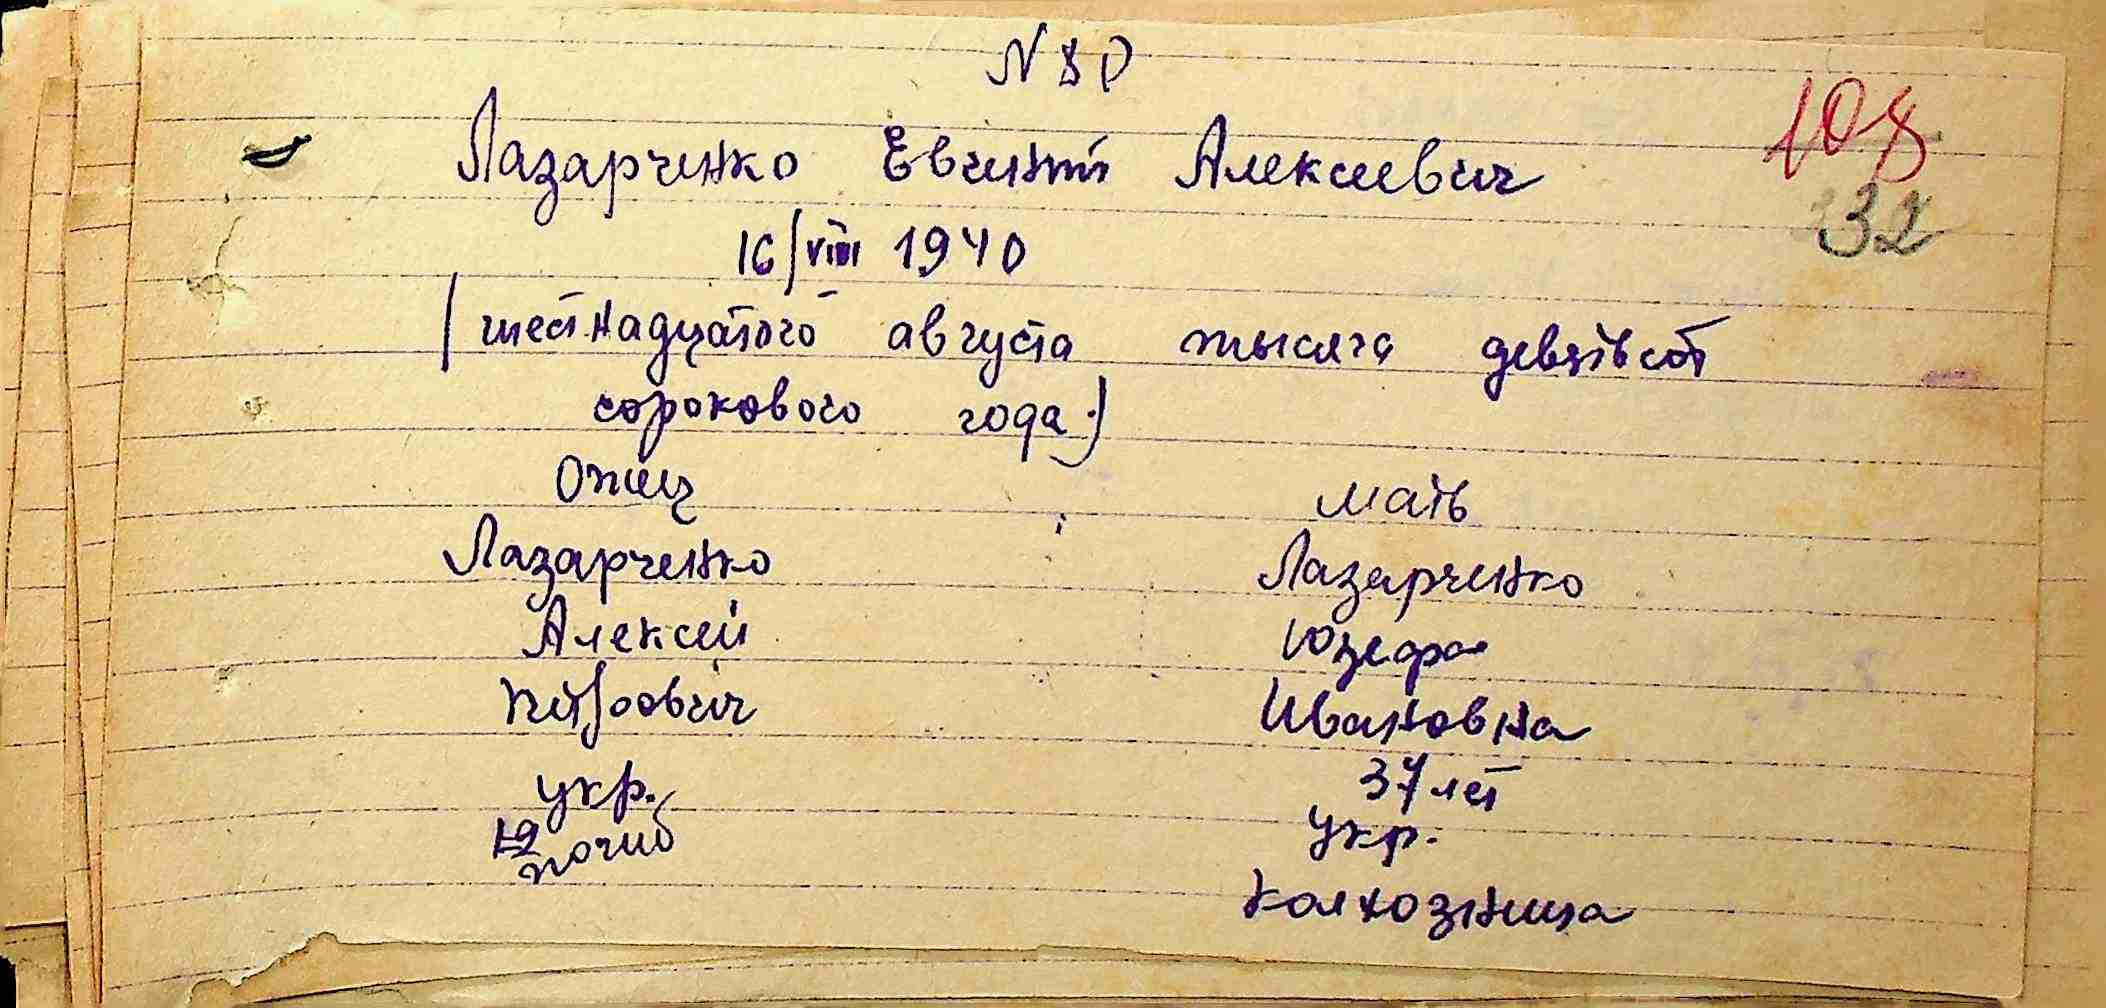 N 80
108
Лазарченко Евгений Алексеевич
32
16/VIII 1940
(шестнадцатого августа тысяча девятьсот
сорокового года.)
Отец мать
Лазарченко Лазарченко
Алексей Юзефа
Петрович Ивановна
укр. 37 лет
погиб укр.
колхозница